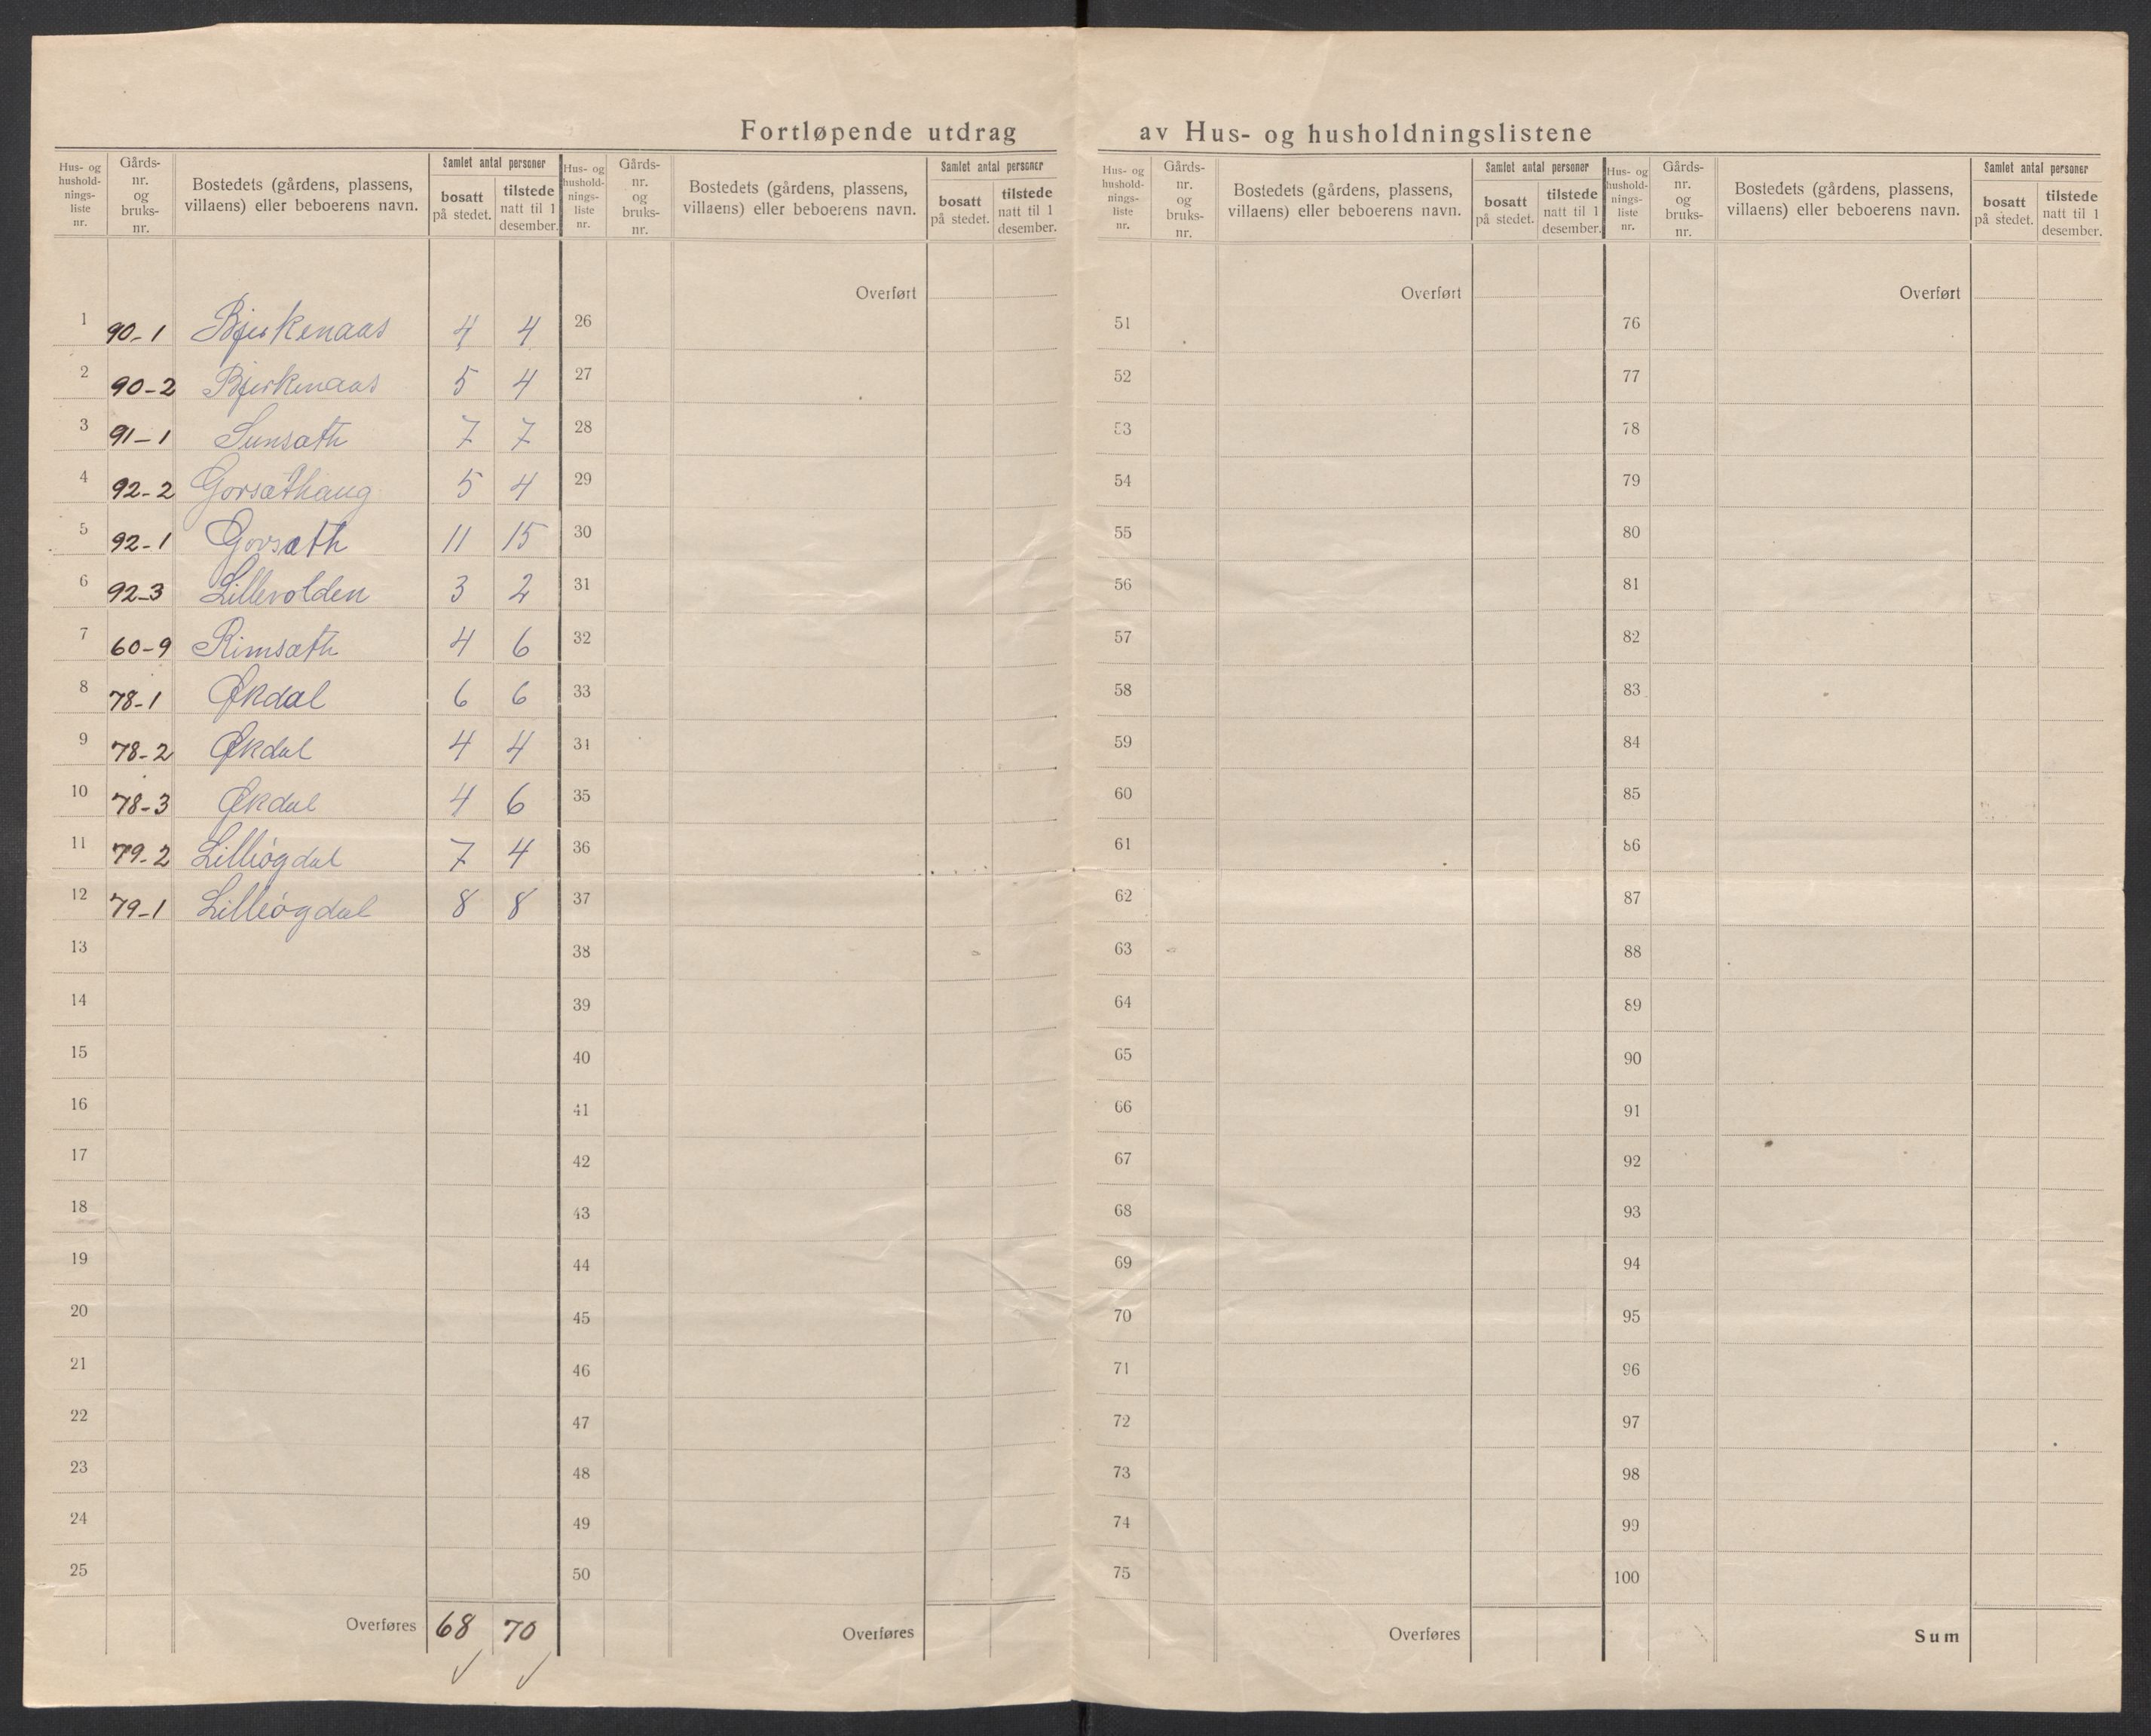 Fortløpende utdrag av Hus- og husholdningslistene
Hus- og husholdnings-liste nr. | Gårds-nr. og bruks-nr. | Bostedets (gårdens, plassens, villaens) eller beboerens navn. | Samlet antal personer | bosatt på stedet. | tilstede natt til 1 desember.
1 90-1 Bjerkenaas 4 4
2 90-2 Bjerkenaas 5 4
3 91-1 Sunsæth 7 7
4 92-2 Gorsæthaug 5 4
5 92-1 Gorsæth 11 15
6 92-3 Lillevolden 3 2
7 60-9 Rimsæth 4 6
8 78-1 Økdal 6 6
9 78-2 Økdal 4 4
10 78-3 Økdal 4 6
11 79-2 Lilleøgdal 7 4
12 79-1 Lilleøgdal 8 8
13
14
15
16
17
18
19
20
21
22
23
24
25
Overføres 68 70
Hus- og husholdnings-liste nr. | Gårds-nr. og bruks-nr. | Bostedets (gårdens, plassens, villaens) eller beboerens navn. | Samlet antal personer | bosatt på stedet. | tilstede natt til 1 desember.
Overført
26
27
28
29
30
31
32
33
34
35
36
37
38
39
40
41
42
43
44
45
46
47
48
49
50
Overføres
Hus- og husholdnings-liste nr. | Gårds-nr. og bruks-nr. | Bostedets (gårdens, plassens, villaens) eller beboerens navn. | Samlet antal personer | bosatt på stedet. | tilstede natt til 1 desember.
Overført
51
52
53
54
55
56
57
58
59
60
61
62
63
64
65
66
67
68
69
70
71
72
73
74
75
Overføres
Hus- og husholdnings-liste nr. | Gårds-nr. og bruks-nr. | Bostedets (gårdens, plassens, villaens) eller beboerens navn. | Samlet antal personer | bosatt på stedet. | tilstede natt til 1 desember.
Overført
76
77
78
79
80
81
82
83
84
85
86
87
88
89
90
91
92
93
94
95
96
97
98
99
100
Sum